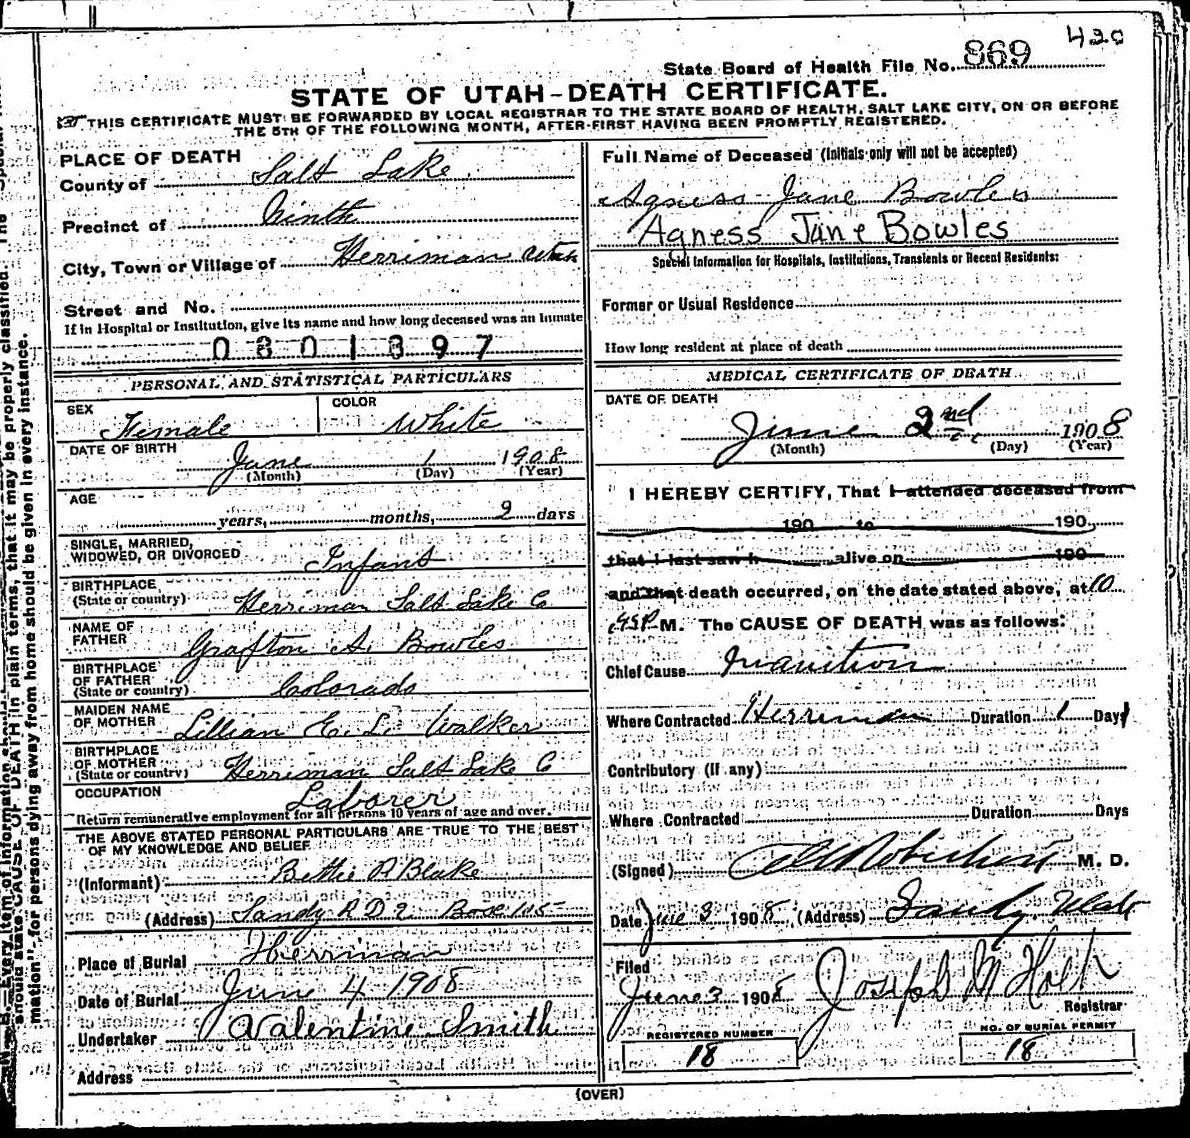 420
State Board of Health File No. 869
STATE OF UTAH-DEATH CERTIFICATE.
THIS CERTIFICATE MUST BE FORWARDED BY LOCAL REGISTRAR TO THE STATE BOARD OF HEALTH, SALT LAKE CITY, ON OR BEFORE
THE 5TH OF THE FOLLOWING MONTH, AFTER FIRST HAVING BEEN PROMPTLY REGISTERED.
PLACE OF DEATH
County of Salt Lake
Precinct of Ninth
City, Town or Village of Herriman Utah
Street and No.
If in Hospital or Institution, give its name and how long deceased was an inmate
0801897
PERSONAL AND STATISTICAL PARTICULARS
SEX Female COLOR White
DATE OF BIRTH June 1 1908
(Month) (Day) (Year)
AGE
years, months, 2 days
SINGLE, MARRIED,
WIDOWED, OR DIVORCED Infant
BIRTHPLACE
(State or country) Herriman Salt Lake Co
NAME OF
FATHER Grafton A. Bowles
BIRTHPLACE
OF FATHER
(State or country) Colorado
MAIDEN NAME
OF MOTHER Lillian E. L. Walker
BIRTHPLACE
OF MOTHER
(State or country) Herriman Salt Lake Co
OCCUPATION Laborer
Return remunerative employment for all persons 10 years of age and over.
THE ABOVE STATED PERSONAL PARTICULARS ARE TRUE TO THE BEST
OF MY KNOWLEDGE AND BELIEF
(Informant) Bettie R Blake
(Address) Sandy R D 2 Box 105
Place of Burial Herriman
Date of Burial June 4 1908
Undertaker Valentine Smith
Address
Full Name of Deceased (Initials only will not be accepted)
Agness Jane Bowles
Agness Jane Bowles
Special Information for Hospitals, Institutions, Transients or Recent Residents:
Former or Usual Residence
How long resident at place of death
MEDICAL CERTIFICATE OF DEATH
DATE OF DEATH
June 2nd 1908
(Month) (Day) (Year)
I HEREBY CERTIFY, That I attended deceased from
190 to 190
that I last saw h alive on 190
and that death occurred, on the date stated above, at 10
P M. The CAUSE OF DEATH was as follows:
Chief Cause Inanition
Where Contracted Herriman Duration 1 Day
Contributory (If any)
Where Contracted Duration Days
(Signed) M. D.
Date June 3 1908 (Address) Sandy, Utah
Filed
June 3 1908 Joseph M Holt
Registrar
REGISTERED NUMBER
18
NO. OF BURIAL PERMIT
18
(OVER)
N. B.—Every item of information
should state CAUSE OF DEATH in plain terms, that it may be properly classified. The
mation" for persons dying away from home should be given in every instance.